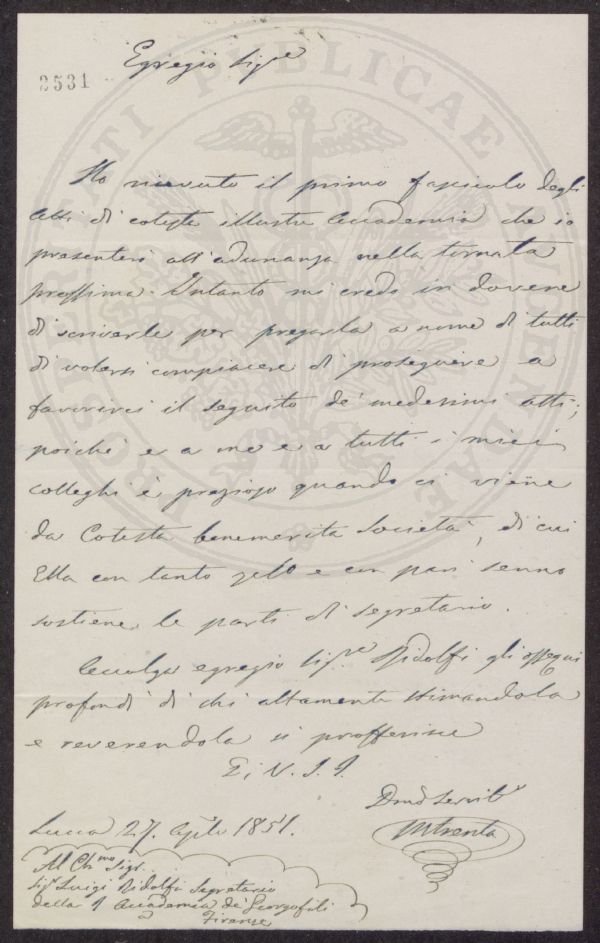 Egregio Sig.re
2531
Ho ricevuto il primo fascicolo degli
Atti di cotesta illustre Accademia che io
presenterò all'adunanza nella tornata
prossima. Intanto mi credo in dovere
di scriverle per pregarla a nome di tutti
di volersi compiacere di proseguire a
favorirci il seguito de' medesimi atti;
poichè e a me e a tutti i miei
colleghi è prezioso quando ci viene
da Cotesta benemerita Società, di cui
Ella con tanto zelo e con pari senno
sostiene le parti di segretario.
Accolga egregio Sig.re Ridolfi gli ossequi
profondi di chi altamente stimandola
e reverendola si profferisce
Di V. S. I.
Dmo Servit.e
Lucca 27. Aprile 1851.
Al Ch.mo Sig.
Sig.r Luigi Ridolfi Segretario
della Accademia de' Georgofili
Firenze
PROSPERITATI PUBLICAE AUGENDAE